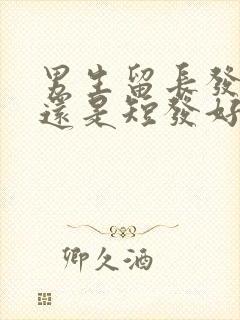 男生留長發
還是短發好
卿久酒